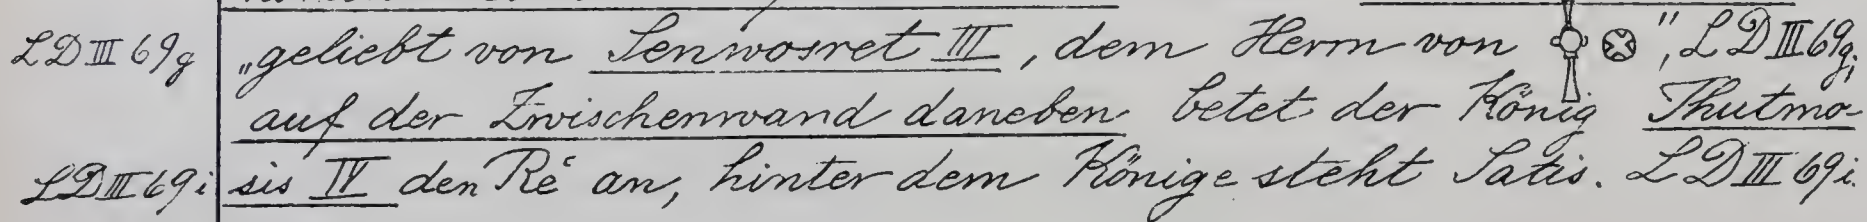 LD III 69g „geliebt von Senwosret III, dem Herrn von 𓌉𓊖", LD III 69g;
auf der Zwischenwand daneben betet der König Thutmo-
LD III 69i sis IV den Rê an, hinter dem Könige steht Satis. LD III 69i.